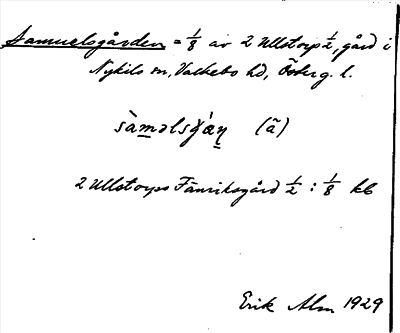 Samuelsgården = 1/8 av 2 Ullstorp 1/2, gård i
Nykils sn, Valkebo hd, Österg. l.
sàməlsgæ̀ɳ (ã)
2 Ullstorps Fänriksgård 1/2 : 1/8 kb
Erik Alm 1929